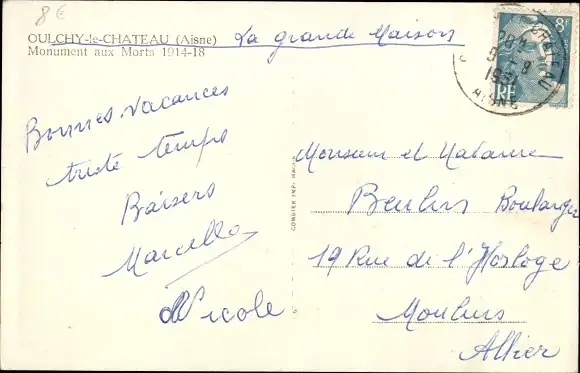 8€
OULCHY-le-CHATEAU (Aisne)
Monument aux Morts 1914-18
La grande Maison
8F
RF
CHATEAU
1951
AISNE
Bonnes vacances
triste temps
Baisers
Marcelle
Nicole
COMBIER IMP. MACON
Monsieur et Madame
Boulanger
19 Rue de l'Horloge
Moulins
Allier